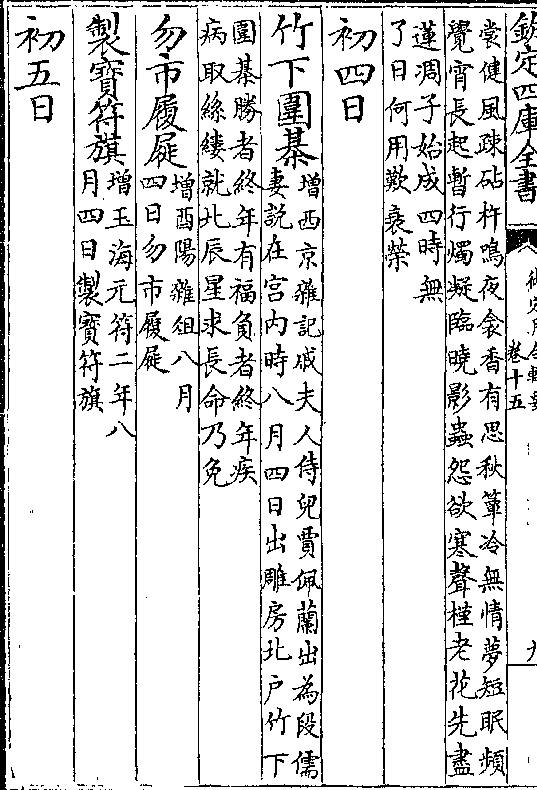 欽定四庫全書
卷十五
裳健風疎砧杵鳴夜衾香有思秋簟冷無情夢短眠頻
覺宵長起暫行燭凝臨曉影蟲怨欲寒聲槿老花先盡
蓮凋子始成四時無
了日何用歎衰榮
初四日
竹下圍棊
增西京雜記戚夫人侍兒賈佩蘭出為段儒
妻説在宫内時八月四日出雕房北户竹下
圍棊勝者終年有福負者終年疾
病取絲縷就北辰星求長命乃免
勿市履屣
增酉陽雜俎八月
四日勿市履屣
製寳符旗
增玉海元符二年八
月四日製寳符旗
初五日